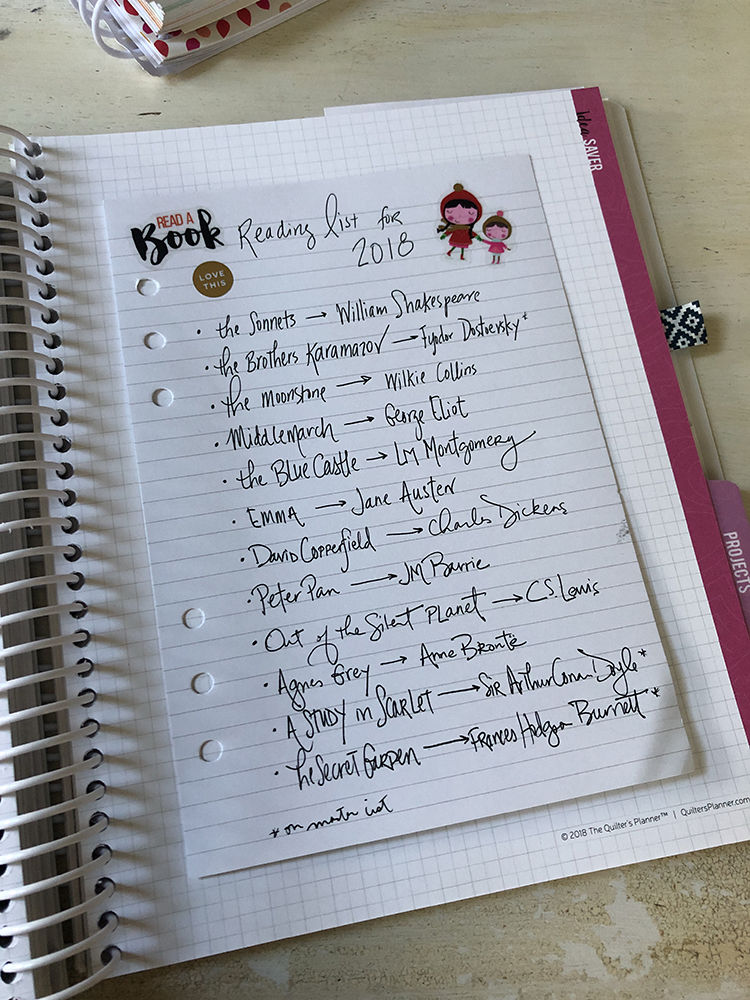 Idea SAVER
READ A
Book
Reading list for
2018
LOVE
THIS
• the Sonnets → William Shakespeare
• the Brothers Karamazov → Fyodor Dostoevsky*
• the Moonstone → Wilkie Collins
• Middlemarch → George Eliot
• the Blue Castle → LM Montgomery
• EMMA → Jane Austen
• David Copperfield → Charles Dickens
• Peter Pan → JM Barrie
• Out of the Silent Planet → C.S. Lewis
• Agnes Grey → Anne Brontë
• A Study in Scarlet → Sir Arthur Conan Doyle*
• the Secret Garden → Frances Hodgson Burnett*
*on master list
PROJECTS
© 2018 The Quilter's Planner™ | QuiltersPlanner.com